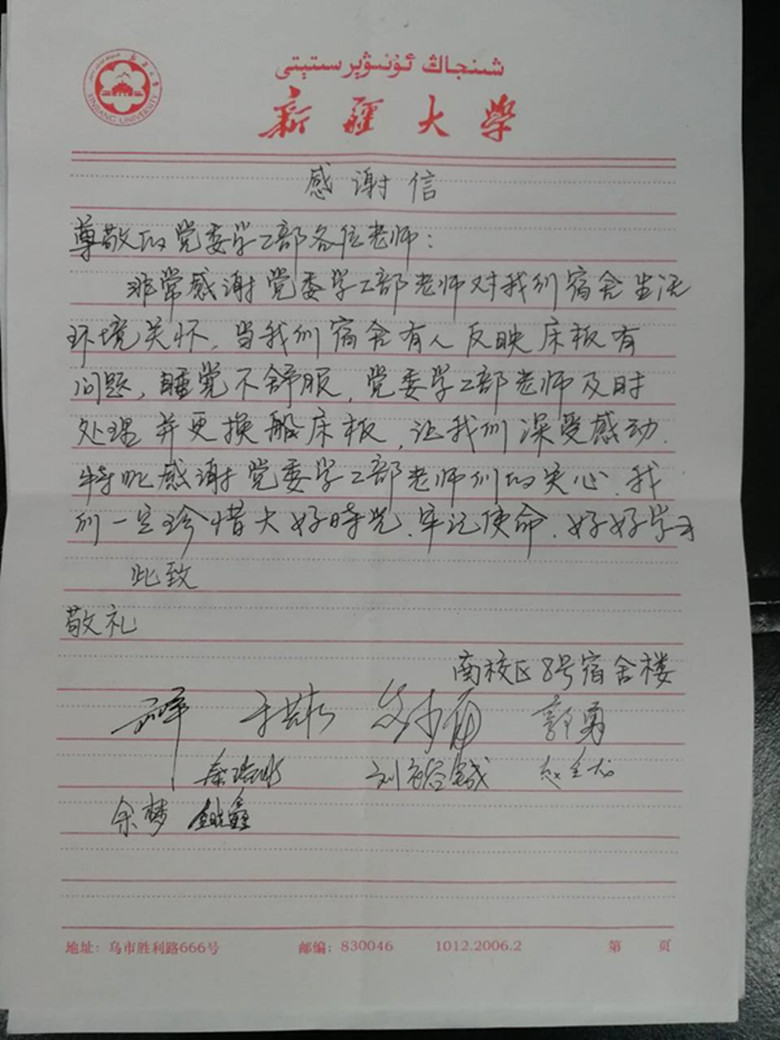 شىنجاڭ ئۇنىۋېرسىتېتى
新疆大学
XINJIANG UNIVERSITY
感谢信
尊敬的党委学工部各位老师：
非常感谢党委学工部老师对我们宿舍生活
环境关怀，当我们宿舍有人反映床板有
问题，睡觉不舒服，党委学工部老师及时
处理并更换船床板，让我们深受感动．
特此感谢党委学工部老师们的关心．我
们一定珍惜大好時光、牢记使命．好好学习
此致
敬礼
南校区8号宿舍楼
郭勇
余梦
地址：乌市胜利路666号 邮编：830046 1012.2006.2 第 页